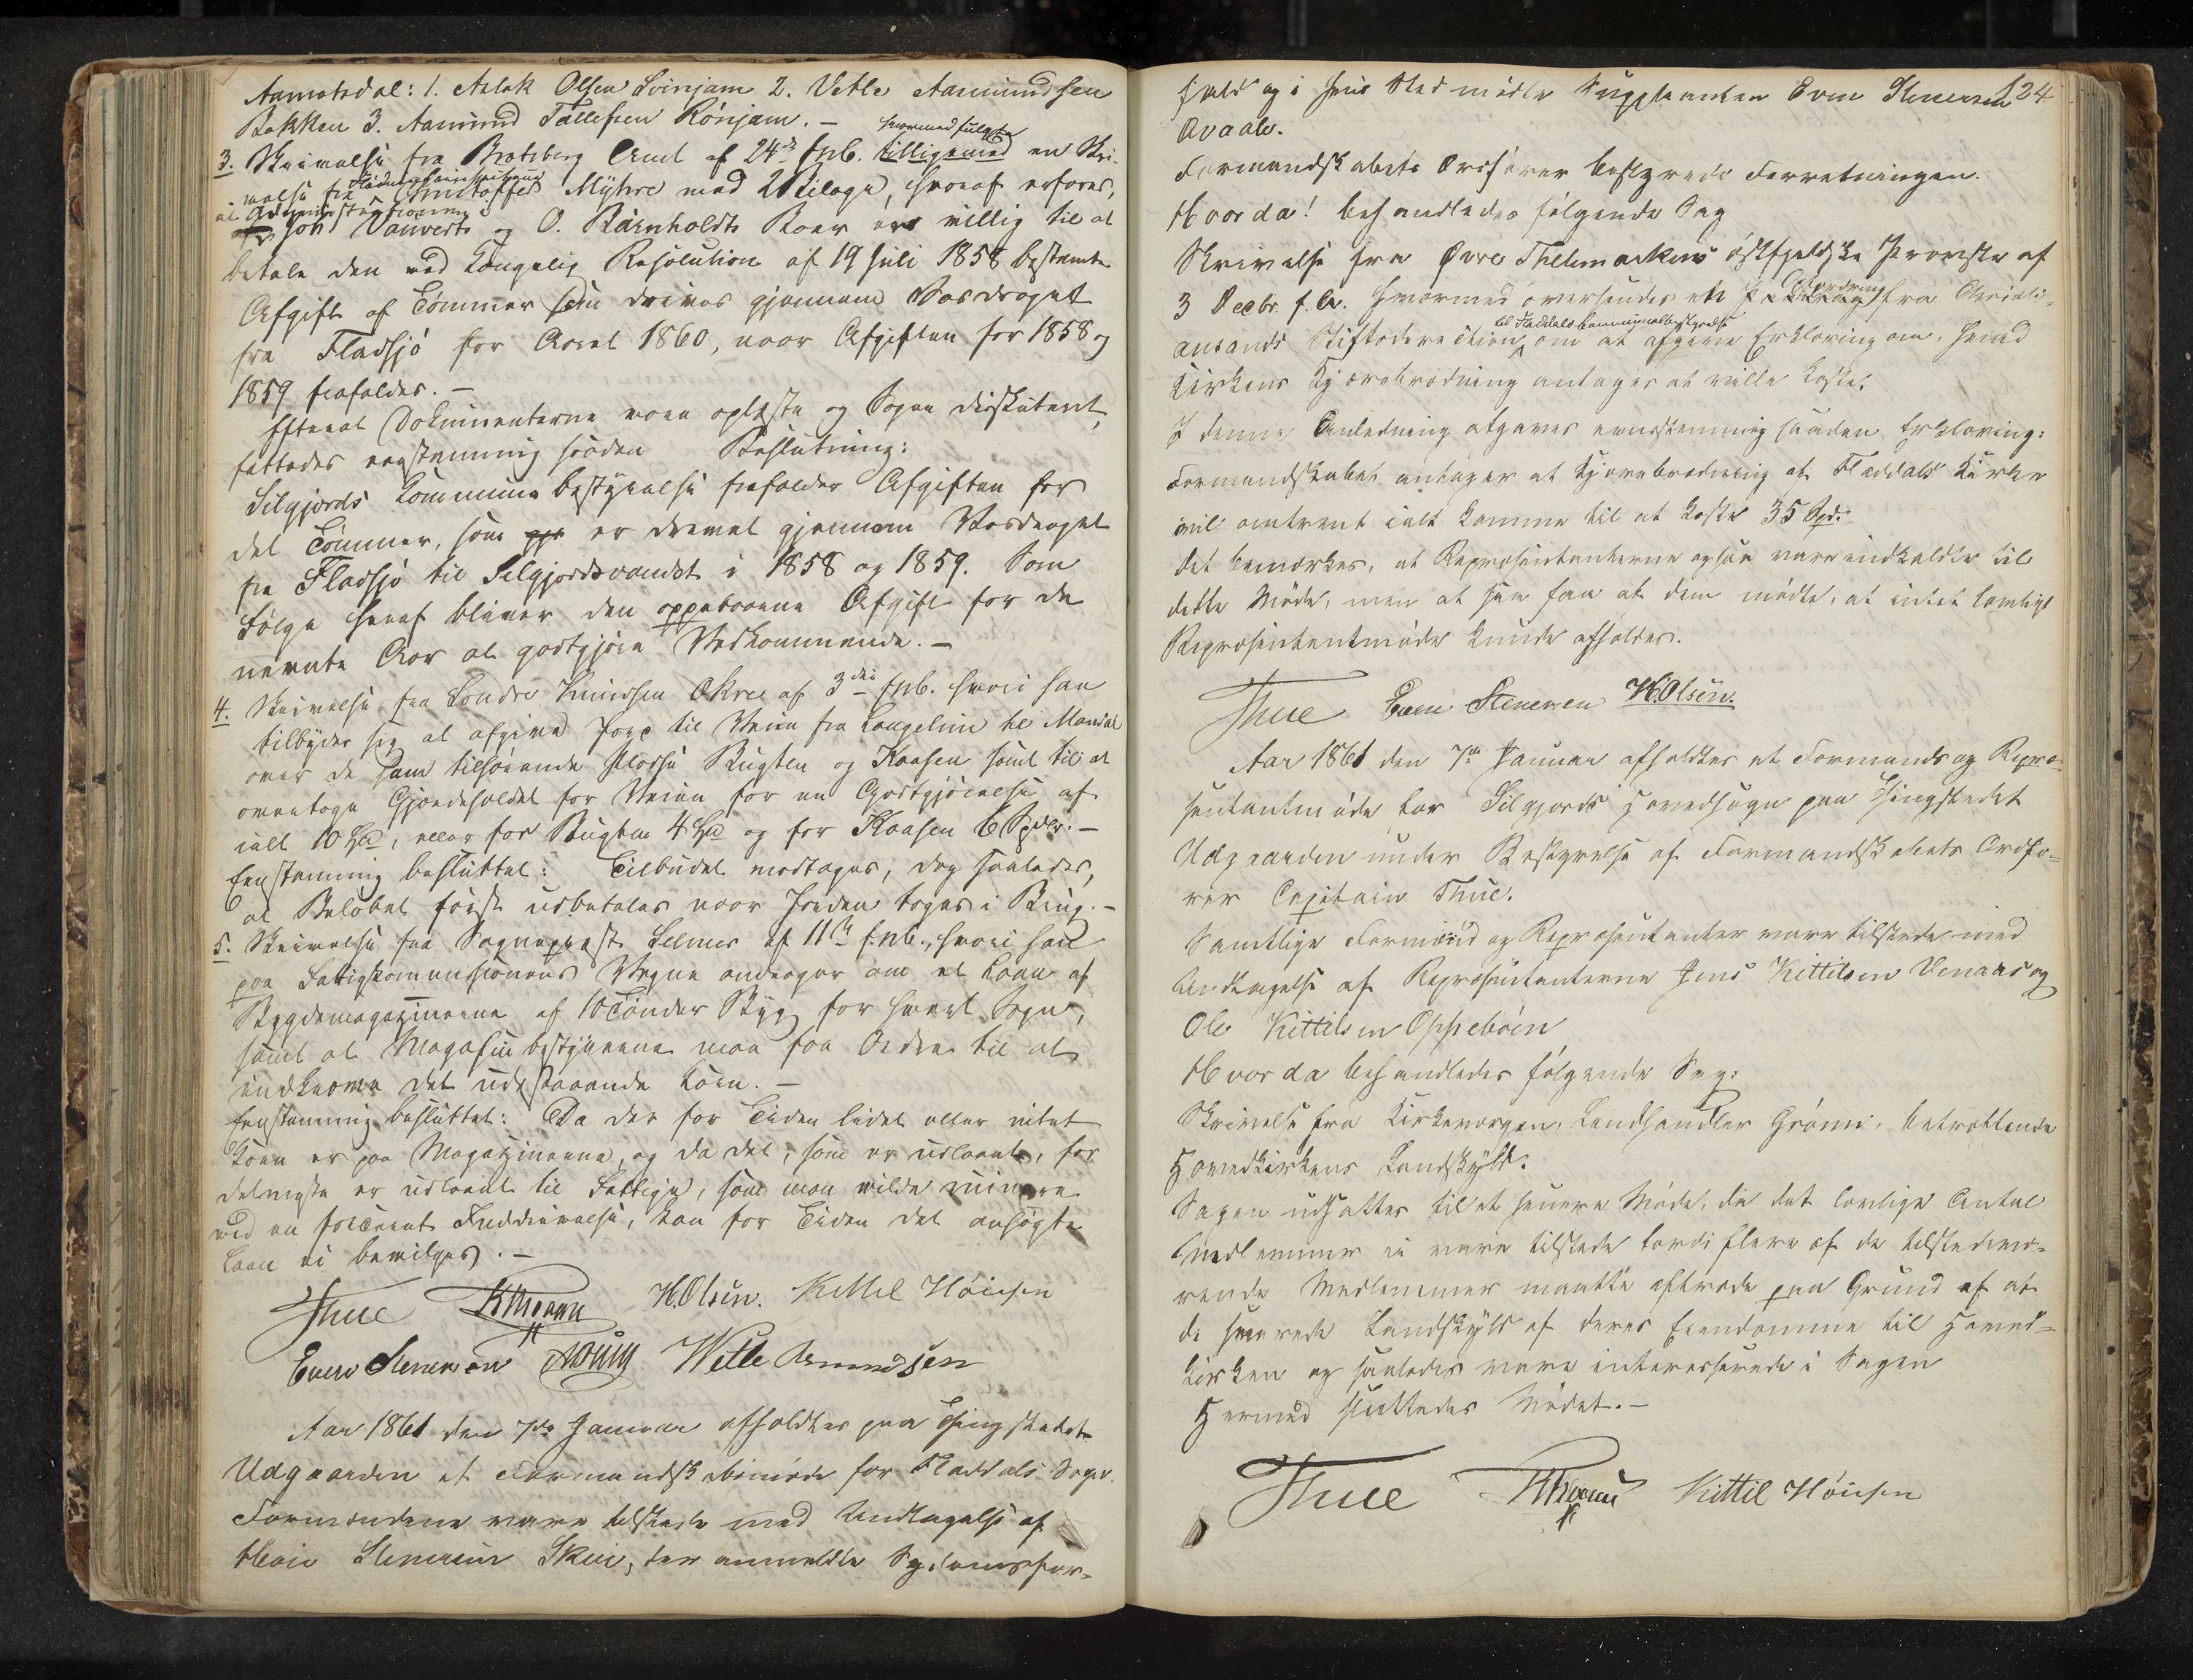 Aamotsdal: 1. Aslak Olsen Svinjam 2. Vetle Aamundsen
Bakken 3. Aamund Tallefsen Rönjam. –
3. Skrivelse fra Bratsberg Amt af 24de f. M. hvormed fulgte tilligemed en Skri-
velse fra Christoffer Myhre med 2 Bilage, hvoraf erfares,
at Joh Vauvert og O. Bärnholdts Boer er villig til at
betale den ved Kongelig Resolution af 19 Juli 1858 bestemte
Afgift af Tømmer som drives gjennem Vasdraget
fra Fladsjö for Aaret 1860, naar Afgiften for 1858 og
1859 frafaldes. –
Efterat Dokumenterne vare oplæste og Sagen diskuteret,
fattedes eenstemmig saadan Beslutning:
Silgjords Kommunebestyrelse frafalder Afgiften for
det Tömmer, som er drevet gjennem Vasdraget
fra Fladsjö til Silgjordsvandet i 1858 og 1859. Som
Følge heraf bliver den oppebaarne Afgift for de
nævnte Aar at godtgjøre Vedkommende. –
4. Skrivelse fra Sondre Knudsen Økre af 3die f. M. hvori han
tilbyder sig at afgive Jord til Veien fra Langelim til Mandal
over de ham tilhørende Pladse Bugten og Kaasen samt til at
overtage Gjærdeholdet for Veien for en Godtgjørelse af
ialt 10 Spd, eller for Bugten 4 Spd og for Kaasen 6 Spdlr. –
Eenstemmig besluttet: Tilbudet modtages, dog saaledes,
at Beløbet først udbetales naar Jorden tages i Brug. –
5. Skrivelse fra Sogneprest Selmer af 11te f. M., hvori han
paa Fattigkommissionens Vegne andrager om et Laan af
Bygdemagazinerne af 10 Tønder Byg for hvert Sogn,
samt at Magasinbestyrerne maa faa Ordre til at
indkræve det udestaaende Korn. –
Eenstemmig besluttet: Da der for Tiden lidet eller intet
Korn er paa Magazinerne, og da det, som er udlaant, for
detmeste er udlaant til Fattige, som man vilde ruinere
ved en forceret Inddrivelse, kan for Tiden det ansøgte
Laan ei bevilges. –
Thue H. Olsen. Kittel Höiesen
Even Stenersen Wetle Aamundsen
Aar 1861 den 7de Januar afholdtes paa Thingstedet
Udgaarden et Formandskabsmøde for Fladdals Sogn.
Formændene vare tilstede med Undtagelse af
Stenersen Skei, der anmeldte Sygdomsfor-
124
fald og i hans Sted mødte Suppleanten Even Stenersen
Avaale.
Formandskabets Ordfører bestyrede Forretningen.
Hvorda! behandledes følgende Sag
Skrivelse fra Øvre Thelemarkens østfjeldske Provstie af
3 Decbr. f. A. hvormed oversendes en Opfordring fra Christi-
ansands Stiftsdirection til Fladdals Communalbestyrelse om at afgive Erklæring om, hvad
Kirkens Tjærebredning antages at ville koste.
I denne Anledning afgaves eenstemmig saadan Erklæring:
Formandskabet antager at Tjærebredning af Fladdals Kirke
vil omtrent ialt komme til at koste 35 Spd.
Det bemærkes, at Repræsentanterne ogsaa vare indkaldte til
dette Møde, men at saa faa af dem mødte, at intet lovligt
Repræsentantmøde kunde afholdes.
Thue Even Stenersen H. Olsen.
Aar 1861 den 7de Januar afholdtes et Formands og Repræ-
sentantmøde for Silgjords Hovedsogn paa Thingstedet
Udgaarden under Bestyrelse af Formandskabets Ordfø-
rer Capitain Thue.
Samtlige Formænd og Repræsentanter vare tilstede med
Undtagelse af Repræsentanterne Jens Kittilsen Venaas og
Ole Kittilsen Oppebøen
Hvorda behandledes følgende Sag:
Skrivelse fra Kirkeværgen, Landhandler Grømi, betræffende
Hovedkirkens Landskyld.
Sagen udsattes til et senere Møde, da det lovlige Antal
Medlemmer ei vare tilstede fordi flere af de tilstedevæ-
rende Medlemmer maatte aftræde paa Grund af at
de svarede Landskyld af deres Eiendomme til Hoved-
kirken og saaledes vare interesserede i Sagen
Hermed sluttedes Mødet. –
Thue Kittil Höiesen